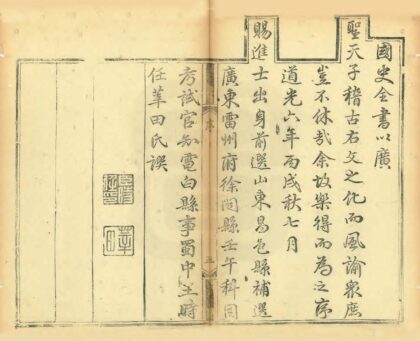 國史全書以廣
聖天子稽古右文之化而風諭眾庶
豈不休哉余故樂得而為之序
道光六年丙戌秋七月
賜進士出身前選山東昌邑縣補選
廣東雷州府徐聞縣壬午科同
考試官知電白縣事蜀中王時
任莘田氏譔
序
三